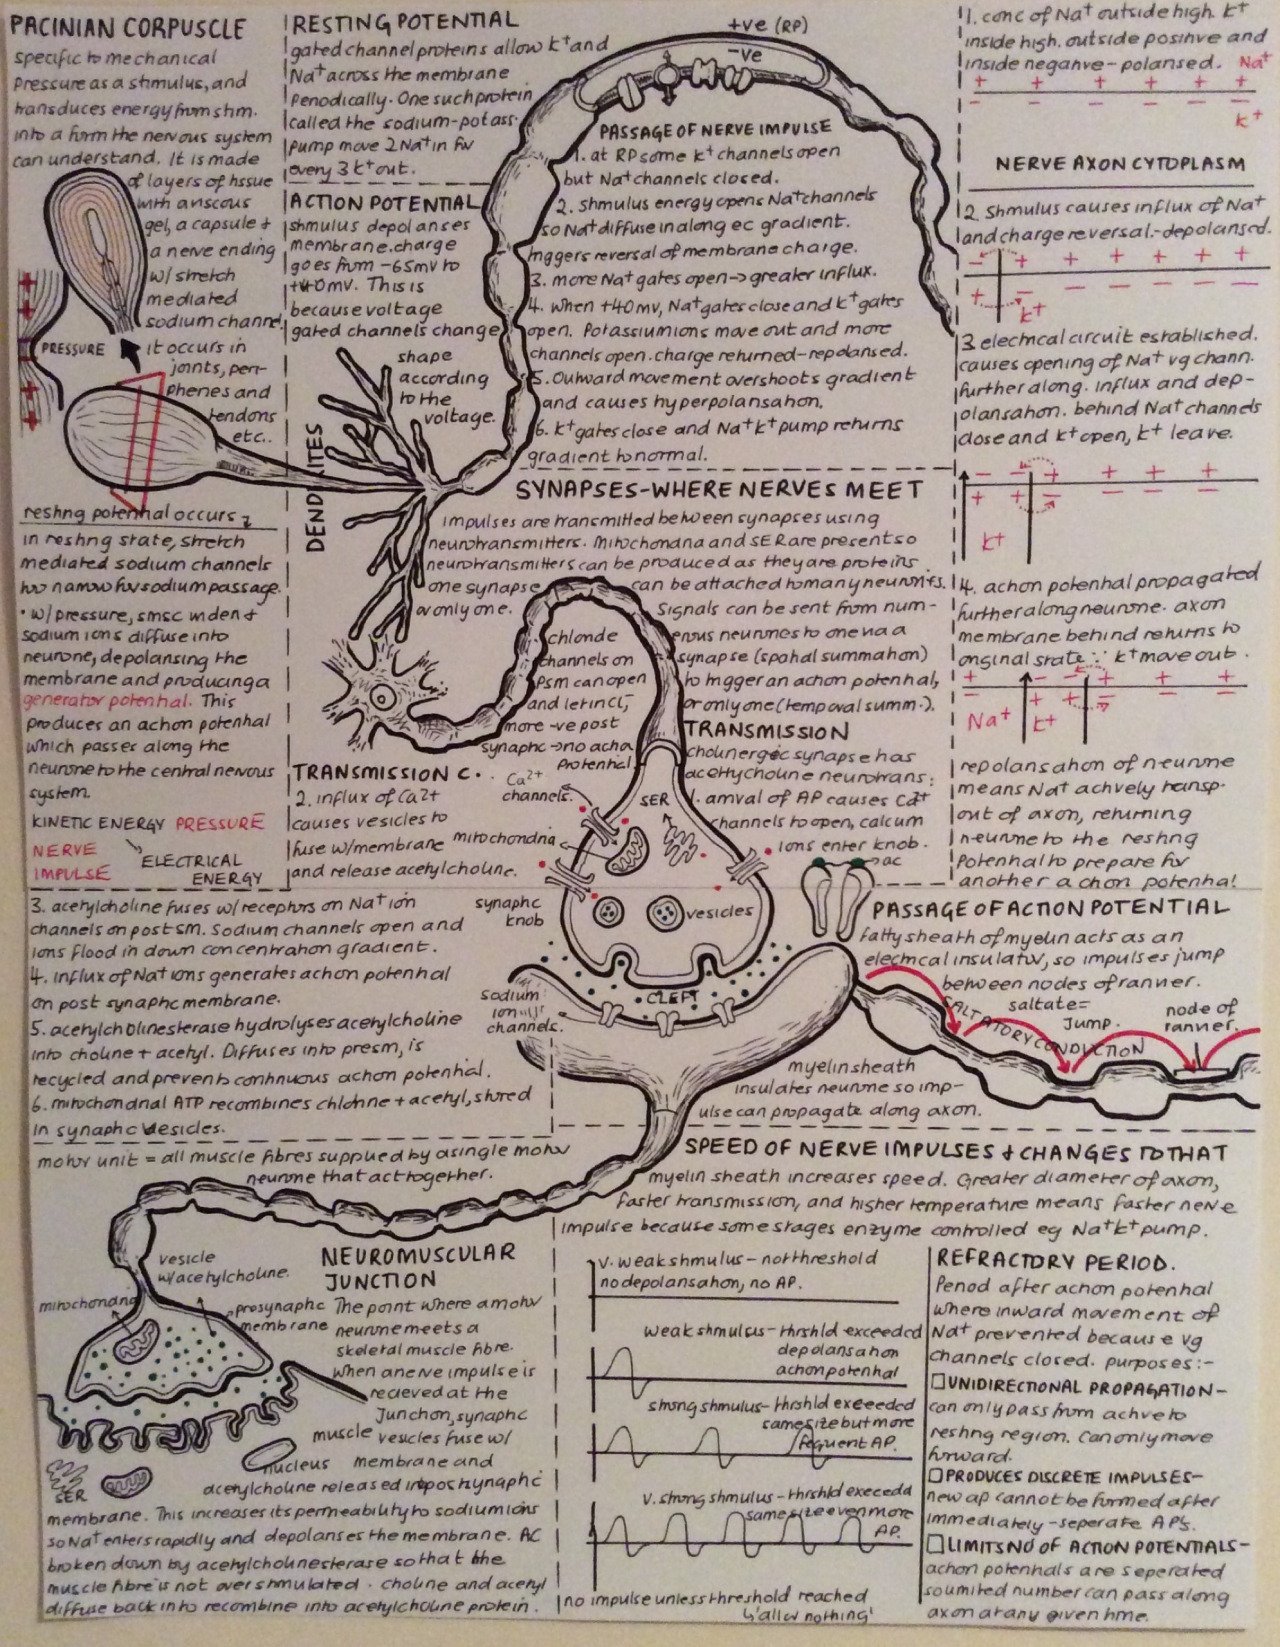 PACINIAN CORPUSCLE
specific to mechanical
pressure as a stimulus, and
transduces energy from stim.
into a form the nervous system
can understand. It is made
of layers of tissue
with a viscous
gel, a capsule +
a nerve ending
w/ stretch
mediated
sodium channel
PRESSURE
it occurs in
joints, peri-
pheries and
tendons
etc..
resting potential occurs
in resting state, stretch
mediated sodium channels
too narrow for sodium passage.
• w/ pressure, smsc widen +
sodium ions diffuse into
neurone, depolarising the
membrane and producing a
generator potential. This
produces an action potential
which passes along the
neurone to the central nervous
system.
KINETIC ENERGY PRESSURE
NERVE
IMPULSE
ELECTRICAL
ENERGY
RESTING POTENTIAL
gated channel proteins allow K+ and
Na+ across the membrane
periodically. One such protein
called the sodium-potass.
pump move 2 Na+ in for
every 3 K+ out.
ACTION POTENTIAL
stimulus depolarises
membrane. charge
goes from -65mv to
+40mv. This is
because voltage
gated channels change
shape
according
to the
voltage.
DENDRITES
+ve (RP)
-ve
PASSAGE OF NERVE IMPULSE
1. at RP some K+ channels open
but Na+ channels closed.
2. stimulus energy opens Na+ channels
so Na+ diffuse in along ec gradient.
triggers reversal of membrane charge.
3. more Na+ gates open → greater influx.
4. when +40mv, Na+ gates close and K+ gates
open. Potassium ions move out and more
channels open. charge returned-repolarised.
5. Outward movement overshoots gradient
and causes hyperpolarisation.
6. K+ gates close and Na+K+ pump returns
gradient to normal.
1. conc of Na+ outside high. K+
inside high. outside positive and
inside negative - polarised. Na+
+ + + + + +
− − − − − −
K+
NERVE AXON CYTOPLASM
2 stimulus causes influx of Na+
and charge reversal.-depolarised.
− + + + + +
+ − − − − −
K+
3 electrical circuit established.
causes opening of Na+ vg chann.
further along. influx and dep-
olarisation. behind Na+ channels
close and K+ open, K+ leave.
− − + + + +
+ + − − − −
K+
4. action potential propagated
further along neurone. axon
membrane behind returns to
original state ∵ K+ move out.
+ − − + + +
− + + − − −
Na+ K+
repolarisation of neurone
means Na+ actively transp.
out of axon, returning
neurone to the resting
potential to prepare for
another action potential
SYNAPSES-WHERE NERVES MEET
impulses are transmitted between synapses using
neurotransmitters. Mitochondria and SER are present so
neurotransmitters can be produced as they are proteins.
one synapse can be attached to many neurones.
or only one. Signals can be sent from num-
erous neurones to one via a
synapse (spatial summation)
to trigger an action potential,
or only one (temporal summ.).
chloride
channels on
psm can open
and let in Cl-,
more -ve post
synaptic → no actio
Potential
TRANSMISSION
cholinergic synapse has
acetycholine neurotrans:
1. arrival of AP causes Ca2+
channels to open, calcum
ions enter knob.
ac
TRANSMISSION C.
2. influx of Ca2+
causes vesicles to
fuse w/ membrane
and release acetylcholine.
Ca2+
channels.
mitochondria
SER
synaptic
knob
vesicles
CLEFT
sodium
ion
channels.
3. acetylcholine fuses w/ receptors on Na+ ion
channels on post SM. Sodium channels open and
ions flood in down concentration gradient.
4. influx of Na+ ions generates action potential
on post synaptic membrane.
5. acetylcholinesterase hydrolyses acetylcholine
into choline + acetyl. Diffuses into presm, is
recycled and prevents continuous action potential.
6. mitochondrial ATP recombines chlorine + acetyl, stored
in synaptic vesicles.
PASSAGE OF ACTION POTENTIAL
fatty sheath of myelin acts as an
electrical insulator, so impulses jump
between nodes of ranner.
saltate =
jump.
SALTATORY CONDUCTION
node of
ranner.
myelin sheath
insulates neurone so imp-
ulse can propagate along axon.
motor unit = all muscle fibres supplied by a single motor
neurone that act together.
SPEED OF NERVE IMPULSES + CHANGES TO THAT
myelin sheath increases speed. Greater diameter of axon,
faster transmission, and higher temperature means faster nerve
impulse because some stages enzyme controlled eg Na+K+ pump.
NEUROMUSCULAR
JUNCTION
vesicle
w/ acetylcholine.
mitochondria
presynaptic
membrane
The point where a motor
neurone meets a
skeletal muscle fibre.
When a nerve impulse is
recieved at the
Junction, synaptic
vesicles fuse w/
membrane and
muscle
nucleus
SER
acetylcholine released into postsynaptic
membrane. This increases its permeability to sodium ions
so Na+ enters rapidly and depolarises the membrane. AC
broken down by acetylcholinesterase so that the
muscle fibre is not over stimulated. choline and acetyl
diffuse back into recombine into acetylcholine protein.
v. weak stimulus - not threshold
no depolarisation, no AP.
weak stimulus - thrshld exceeded
depolarisation
action potential
strong stimulus - thrshld exceeded
same size but more
fequent AP.
v. strong stimulus - thrshld exceedd
same size even more
AP.
no impulse unless threshold reached
↳ 'all or nothing'
REFRACTORY PERIOD.
Period after action potential
where inward movement of
Na+ prevented because vg
channels closed. purposes:-
□ UNIDIRECTIONAL PROPAGATION-
can only pass from active to
resting region. Can only move
forward.
□ PRODUCES DISCRETE IMPULSES-
new ap cannot be formed after
immediately - seperate AP's.
□ LIMITS NO OF ACTION POTENTIALS-
action potentials are seperated
so limited number can pass along
axon at any given time.